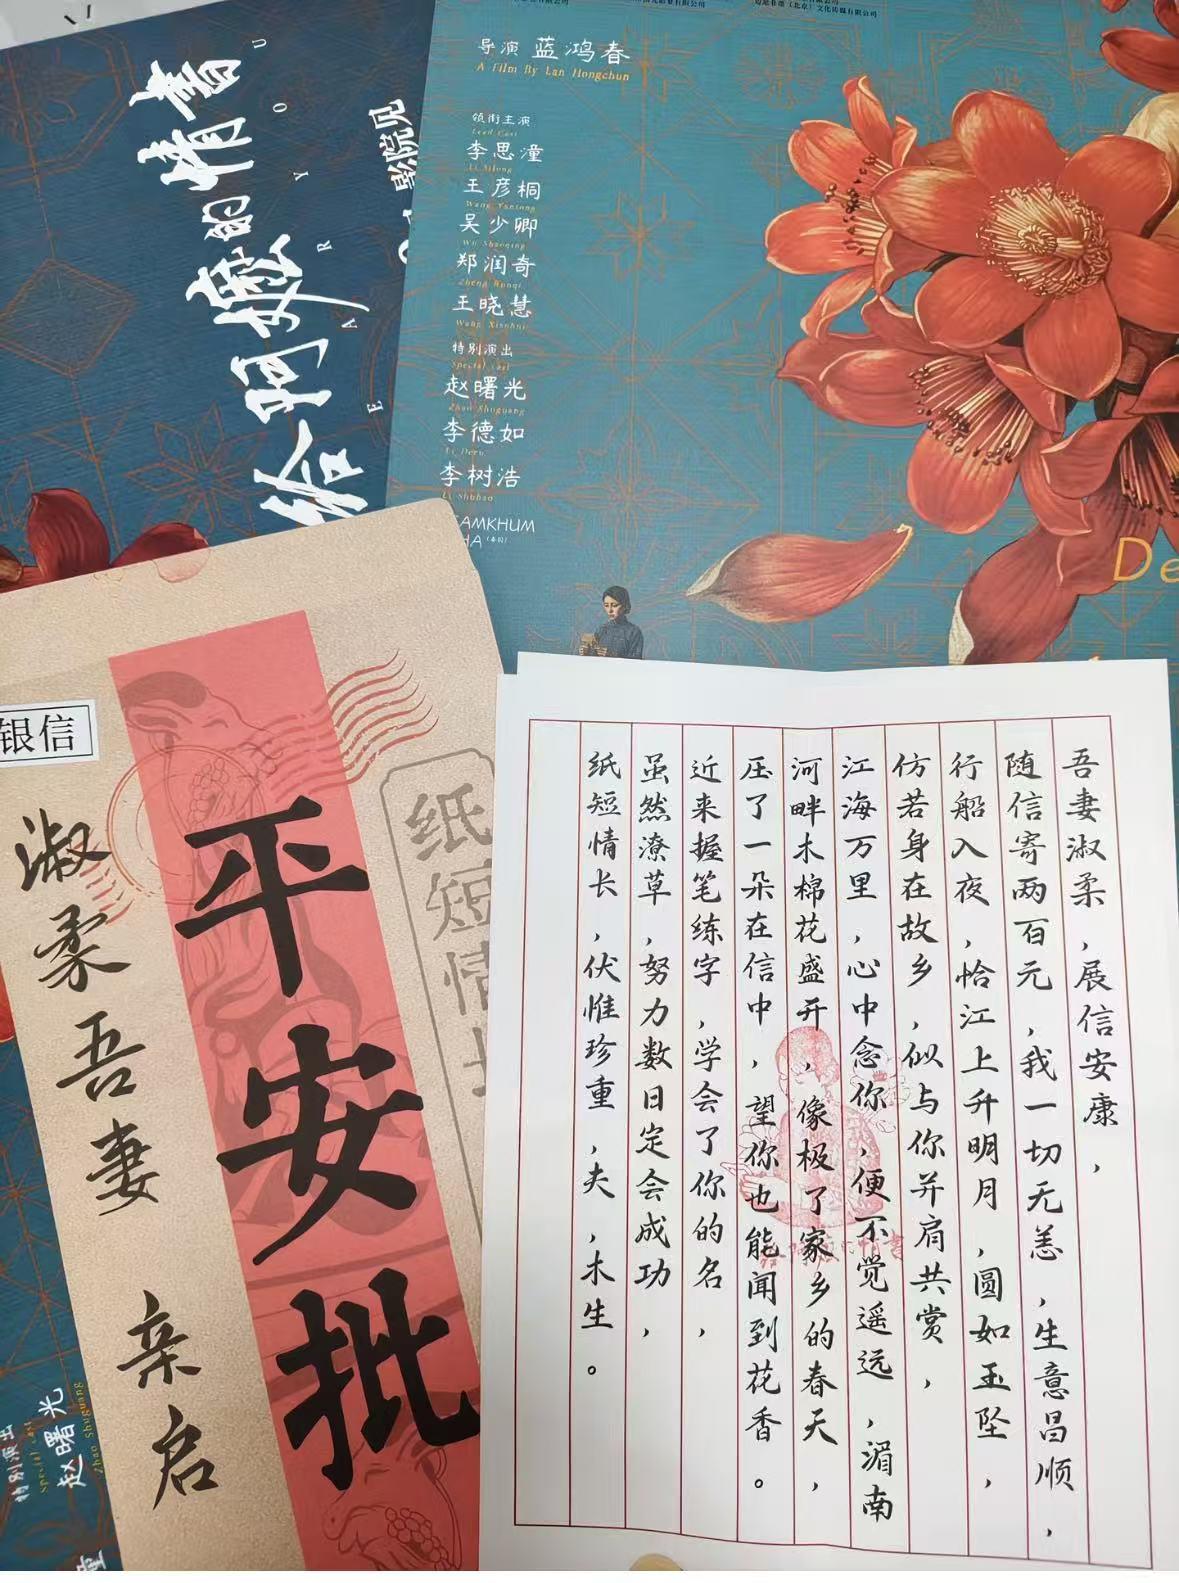 给阿嬷的情書
DEAR YOU
影院见
导演 蓝鸿春
A Film By Lan Hongchun
领衔主演
Lead Cast
李思潼
Li Sitong
王彦桐
Wang Yantong
吴少卿
Wu Shaoqing
郑润奇
Zheng Runqi
王晓慧
Wang Xiaohui
特别演出
Special Cast
赵曙光
Zhao Shuguang
李德如
Li Deru
李树浩
Li Shuhao
AMKHUM
HA
De
银信
平安批
纸短情长
淑柔吾妻 亲启
特别演出
Special Cast
赵曙光
Zhao Shuguang
吾妻淑柔,展信安康,
随信寄两百元,我一切无恙,生意昌顺,
行船入夜,恰江上升明月,圆如玉坠,
仿若身在故乡,似与你并肩共赏,
江海万里,心中念你,便不觉遥远,湄南
河畔木棉花盛开,像极了家乡的春天,
压了一朵在信中,望你也能闻到花香。
近来握笔练字,学会了你的名,
虽然潦草,努力数日定会成功,
纸短情长,伏惟珍重,夫,木生。
给阿嬷的情書